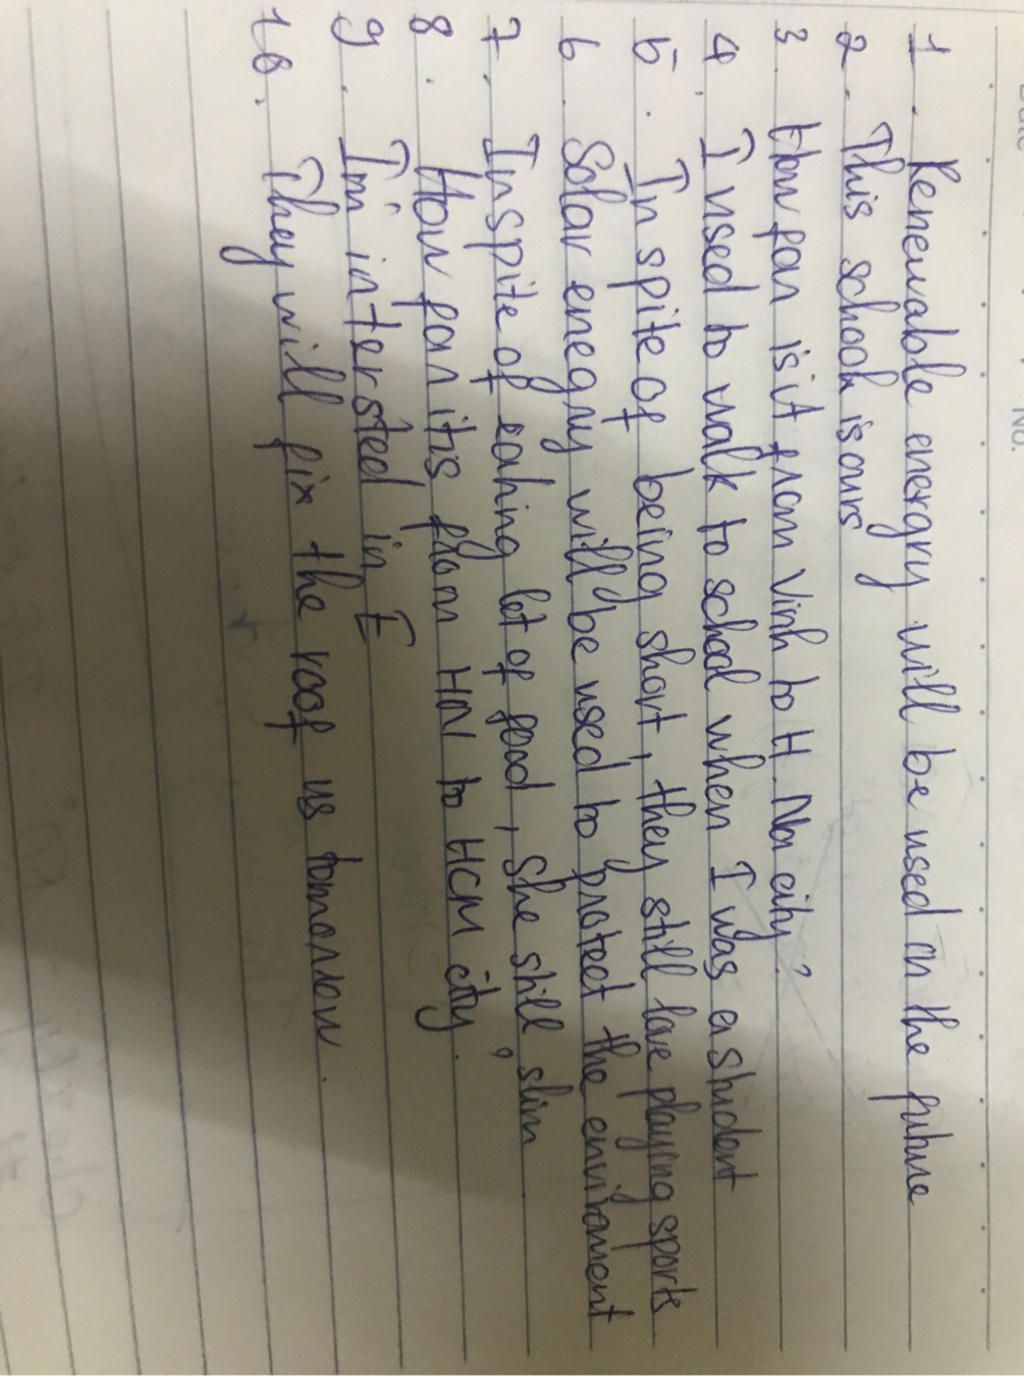 Date
No.
1. Renewable energry will be used on the future
2. This schook is ours
3. How far is it from Vinh to H. Noi city?
4. I used to walk to school when I was a student
5. In spite of being short, they still love playing sports
6. Solar enegry will be used to protect the enviroment
7. Inspite of eating lot of food, she still slim
8. How far it is from HN to HCM city.
9. I'm intersted in E
10. They will fix the roof us tomorrow.